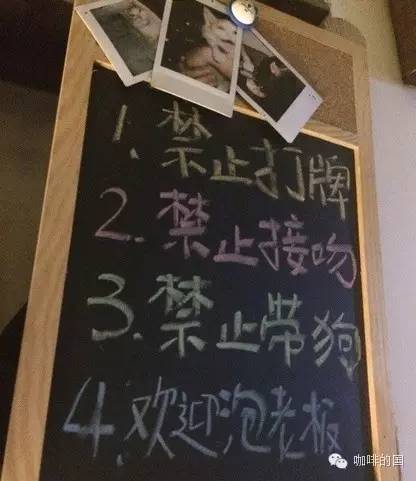 1. 禁止打牌
2. 禁止接吻
3. 禁止带狗
4. 欢迎泡老板
咖啡的国